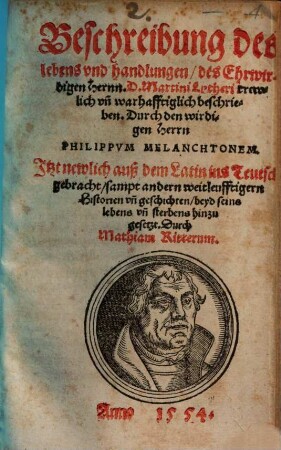 2.
4
Beschreibung des
lebens vnd handlungen / des Ehrwir-
digen Herrn. D. Martini Lutheri trew-
lich vñ warhafftiglich beschrie-
ben. Durch den wirdi-
gen Herrn
PHILIPPVM MELANCHTONEM.
Jtzt newlich auß dem Latin ins Teutsch
gebracht / sampt andern weitleufftigern
Historien vñ geschichten / beyd seins
lebens vñ sterbens hinzu
gesetzt. Durch
Mathiam Ritterum.
Anno 1554.